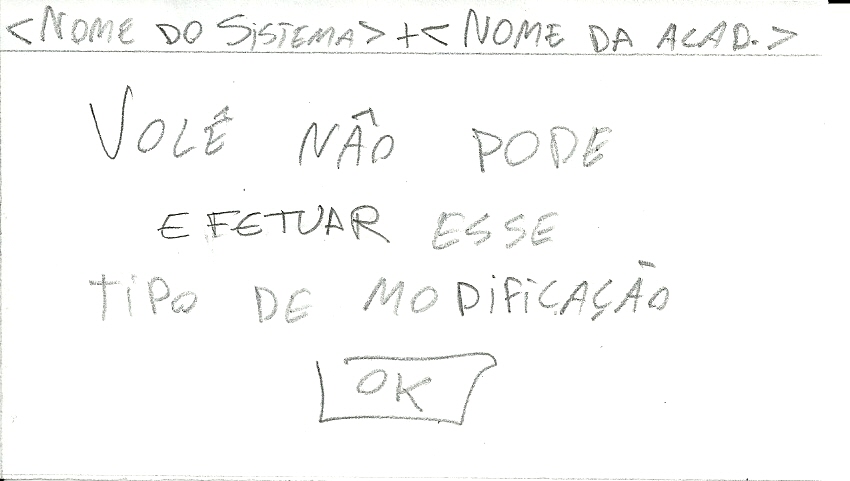 <NOME DO SISTEMA> + <NOME DA ACAD.>
VOCÊ NÃO PODE
EFETUAR ESSE
TIPO DE MODIFICAÇÃO
OK